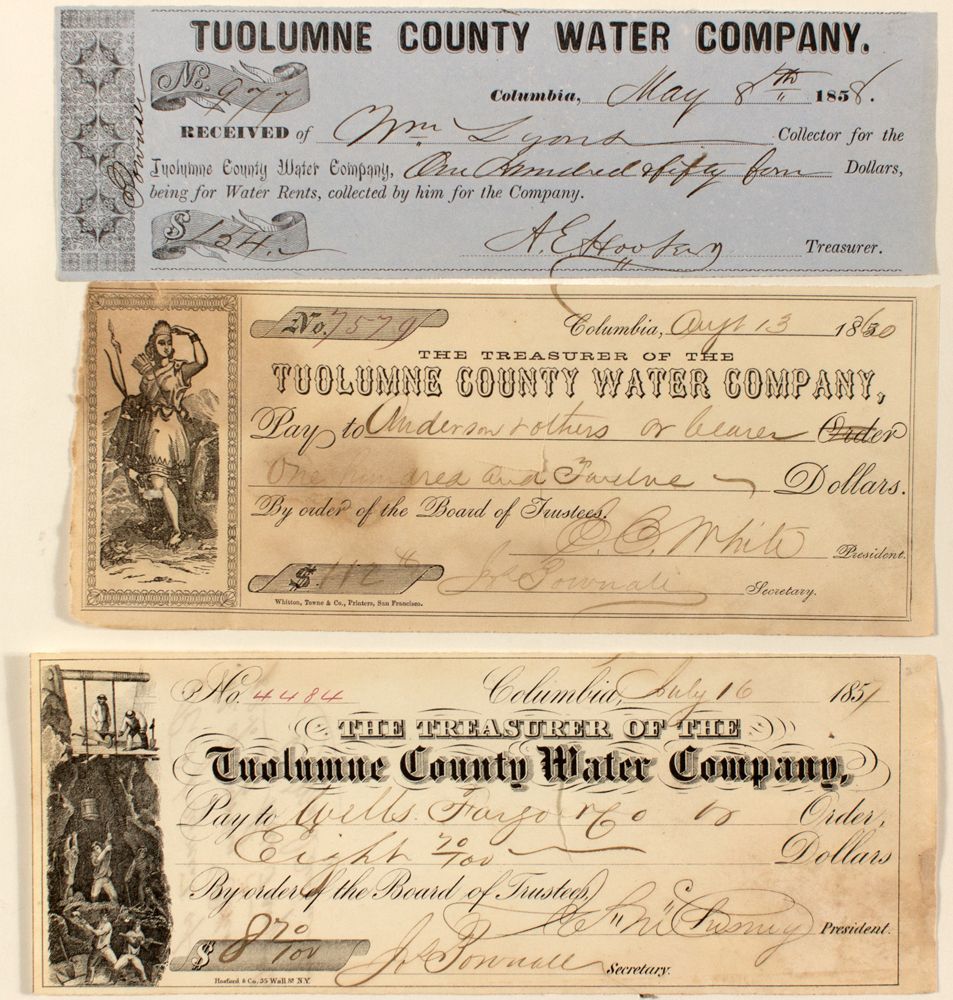 TUOLUMNE COUNTY WATER COMPANY.
No. 977
Columbia, May 8th 1858.
RECEIVED of Wm Lyons Collector for the
Tuolumne County Water Company, One Hundred & fifty four Dollars,
being for Water Rents, collected by him for the Company.
$ 154.
Treasurer.
No. 7579
Columbia, Augt 13 1860
THE TREASURER OF THE
TUOLUMNE COUNTY WATER COMPANY,
Pay to Anderson & others or bearer Order
One hundred and Twelve Dollars.
By order of the Board of Trustees.
E. C. White President.
$ 112
Jos Pownall Secretary.
Whitton, Towne & Co., Printers, San Francisco.
No. 4484
Columbia, July 16 1857
THE TREASURER OF THE
Tuolumne County Water Company,
Pay to Wells Fargo & Co or Order,
Eight 70/100 Dollars
By order of the Board of Trustees,
President.
$ 8 70/100
Jos Pownall Secretary.
Hosford & Co. 35 Wall St. N.Y.